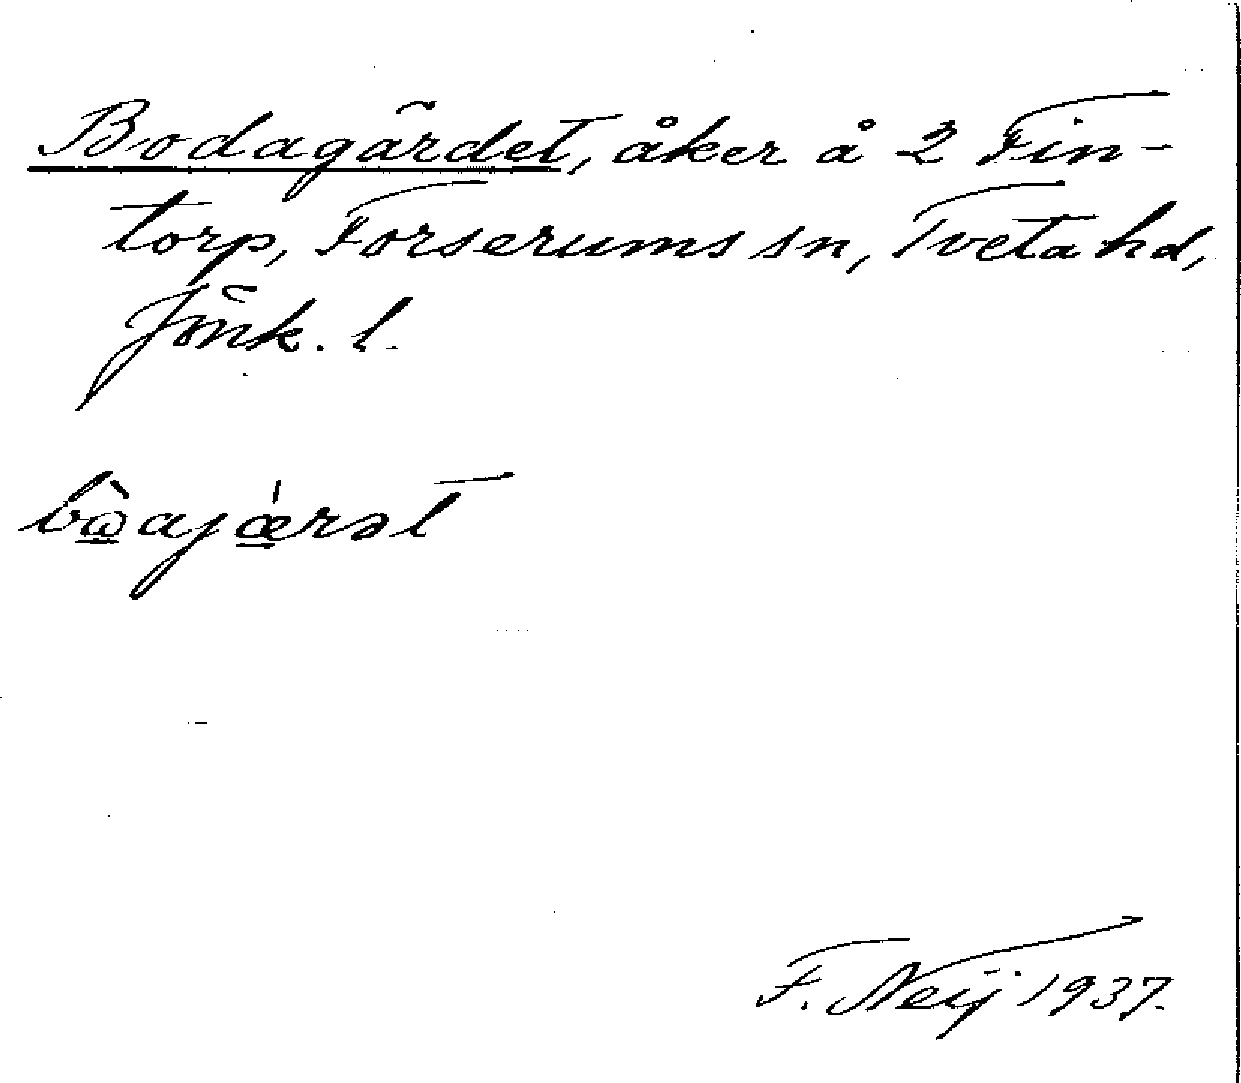 Bodagärdet, åker å 2 Fin-
torp, Forserums sn, Tveta hd,
Jönk. l.
bὼ̲ajǽ̲rət
F. Neij 1937.